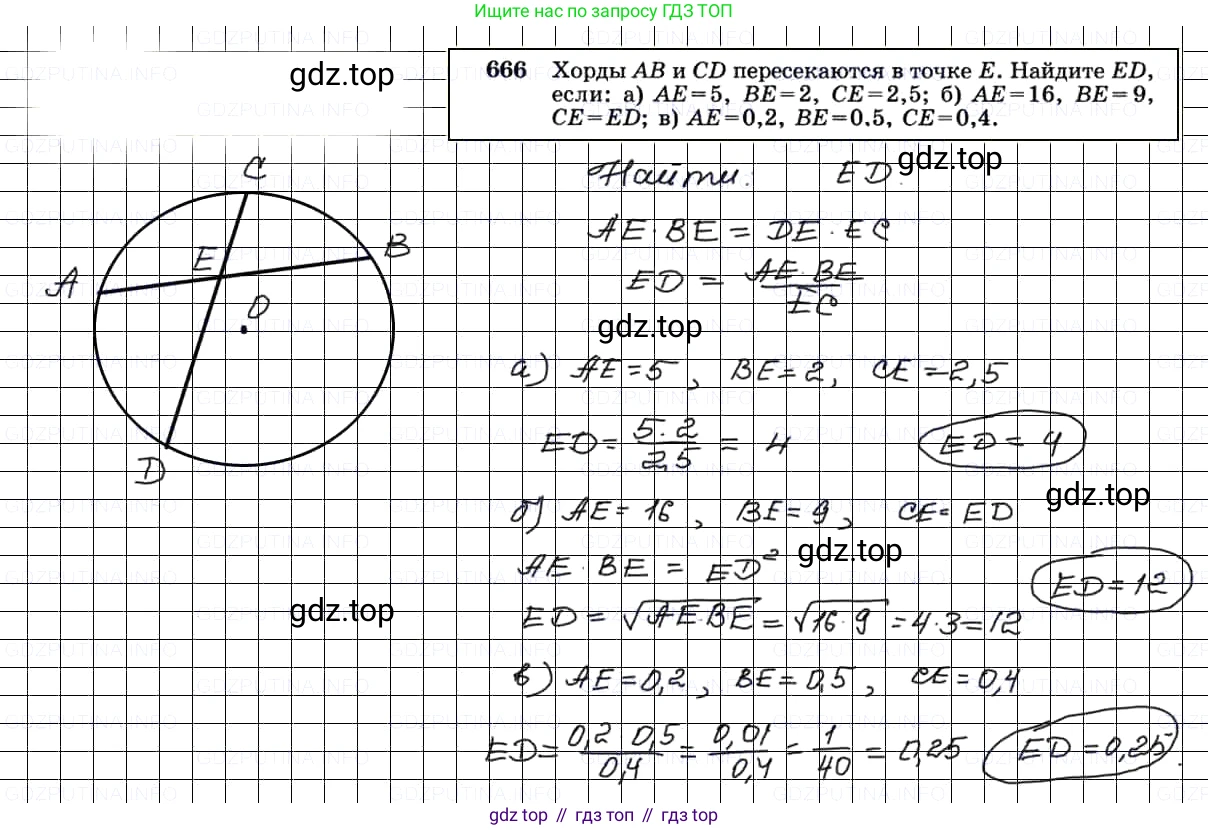 Ищите нас по запросу ГДЗ ТОП
gdz.top
666 Хорды AB и CD пересекаются в точке E. Найдите ED,
если: а) AE=5, BE=2, CE=2,5; б) AE=16, BE=9,
CE=ED; в) AE=0,2, BE=0,5, CE=0,4.
Найти: ED.
gdz.top
C
B
E
A
O
D
AE·BE = DE·EC
ED = AE·BE / EC
gdz.top
а) AE=5, BE=2, CE=2,5
ED = 5·2 / 2,5 = 4 ED = 4
gdz.top
б) AE=16, BE=9, CE=ED
gdz.top
AE·BE = ED²
ED=12
gdz.top
ED = √AE·BE = √16·9 = 4·3=12
в) AE=0,2, BE=0,5, CE=0,4
ED = 0,2·0,5 / 0,4 = 0,01 / 0,4 = 1/40 = 0,25 ED=0,25.
gdz.top // гдз топ // gdz top